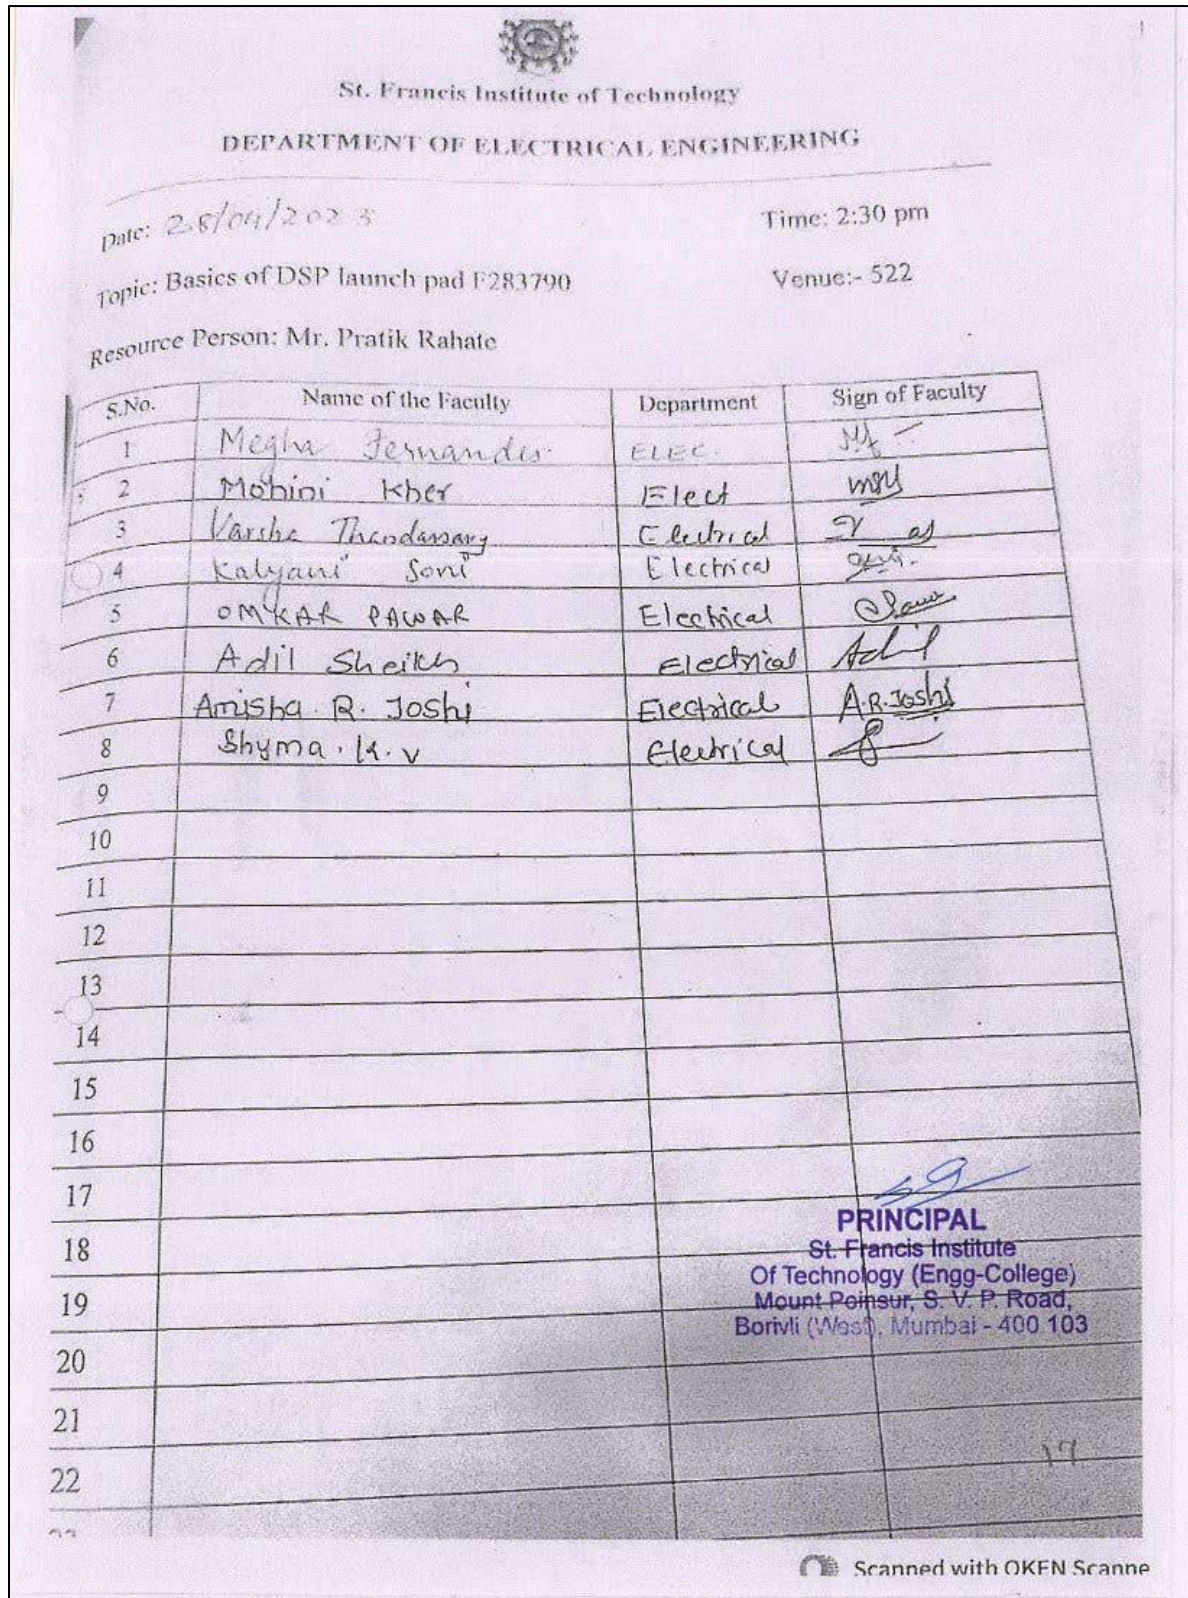 St. Francis Institute of Technology
DEPARTMENT OF ELECTRICAL ENGINEERING
Date: 28/04/2023 Time: 2:30 pm
Topic: Basics of DSP launch pad F283790 Venue:- 522
Resource Person: Mr. Pratik Rahate
S.No. Name of the Faculty Department Sign of Faculty
1 Megha Fernandes. ELEC.
2 Mohini Kher Elect
3 Varsha Thandassary Electrical
4 Kalyani Soni Electrical
5 OMKAR PAWAR Electrical
6 Adil Sheikh Electrical Adil
7 Amisha. R. Joshi Electrical A.R.Joshi
8 Shyma. K. V Electrical
9
10
11
12
13
14
15
16
17
PRINCIPAL
18 St. Francis Institute
Of Technology (Engg-College)
19 Mount Poinsur, S. V. P. Road,
Borivli (West), Mumbai - 400 103
20
21
22 17
Scanned with OKEN Scanne